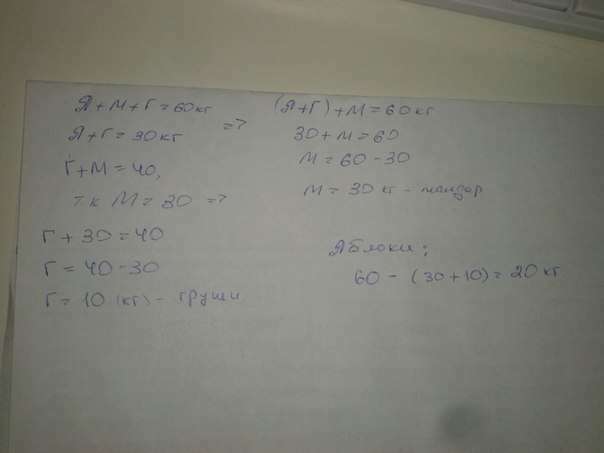 Я + М + Г = 60 кг
Я + Г = 30 кг => 
Г + М = 40,
т к М = 30 =>
Г + 30 = 40
Г = 40 - 30
Г = 10 (кг) - груши
(Я + Г) + М = 60 кг
30 + М = 60
М = 60 - 30
М = 30 кг - мандар
Яблоки:
60 - (30 + 10) = 20 кг